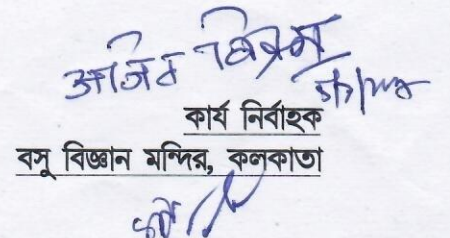 অজিত বিক্রম
কার্য নির্বাহক
বসু বিজ্ঞান মন্দির, কলকাতা